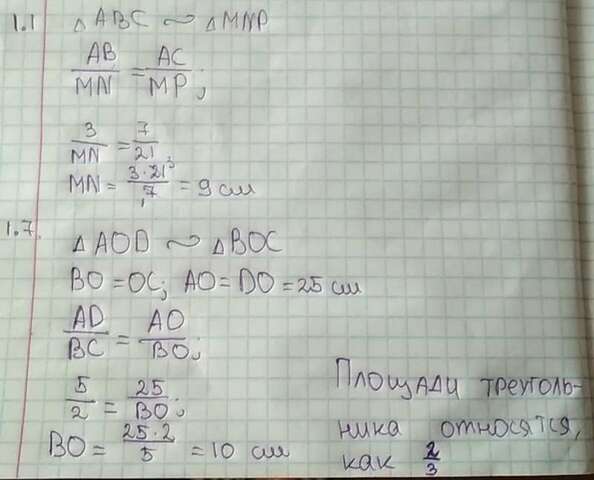 1.1 △ABC ~ △MNP
AB/MN = AC/MP;
3/MN = 7/21
MN = 3·21³/7 = 9 см
1.7. △AOD ~ △BOC
BO = OC; AO = DO = 25 см
AD/BC = AO/BO;
5/2 = 25/BO;
BO = 25·2/5 = 10 см
Площади треуголь-
ника относятся,
как 2/3